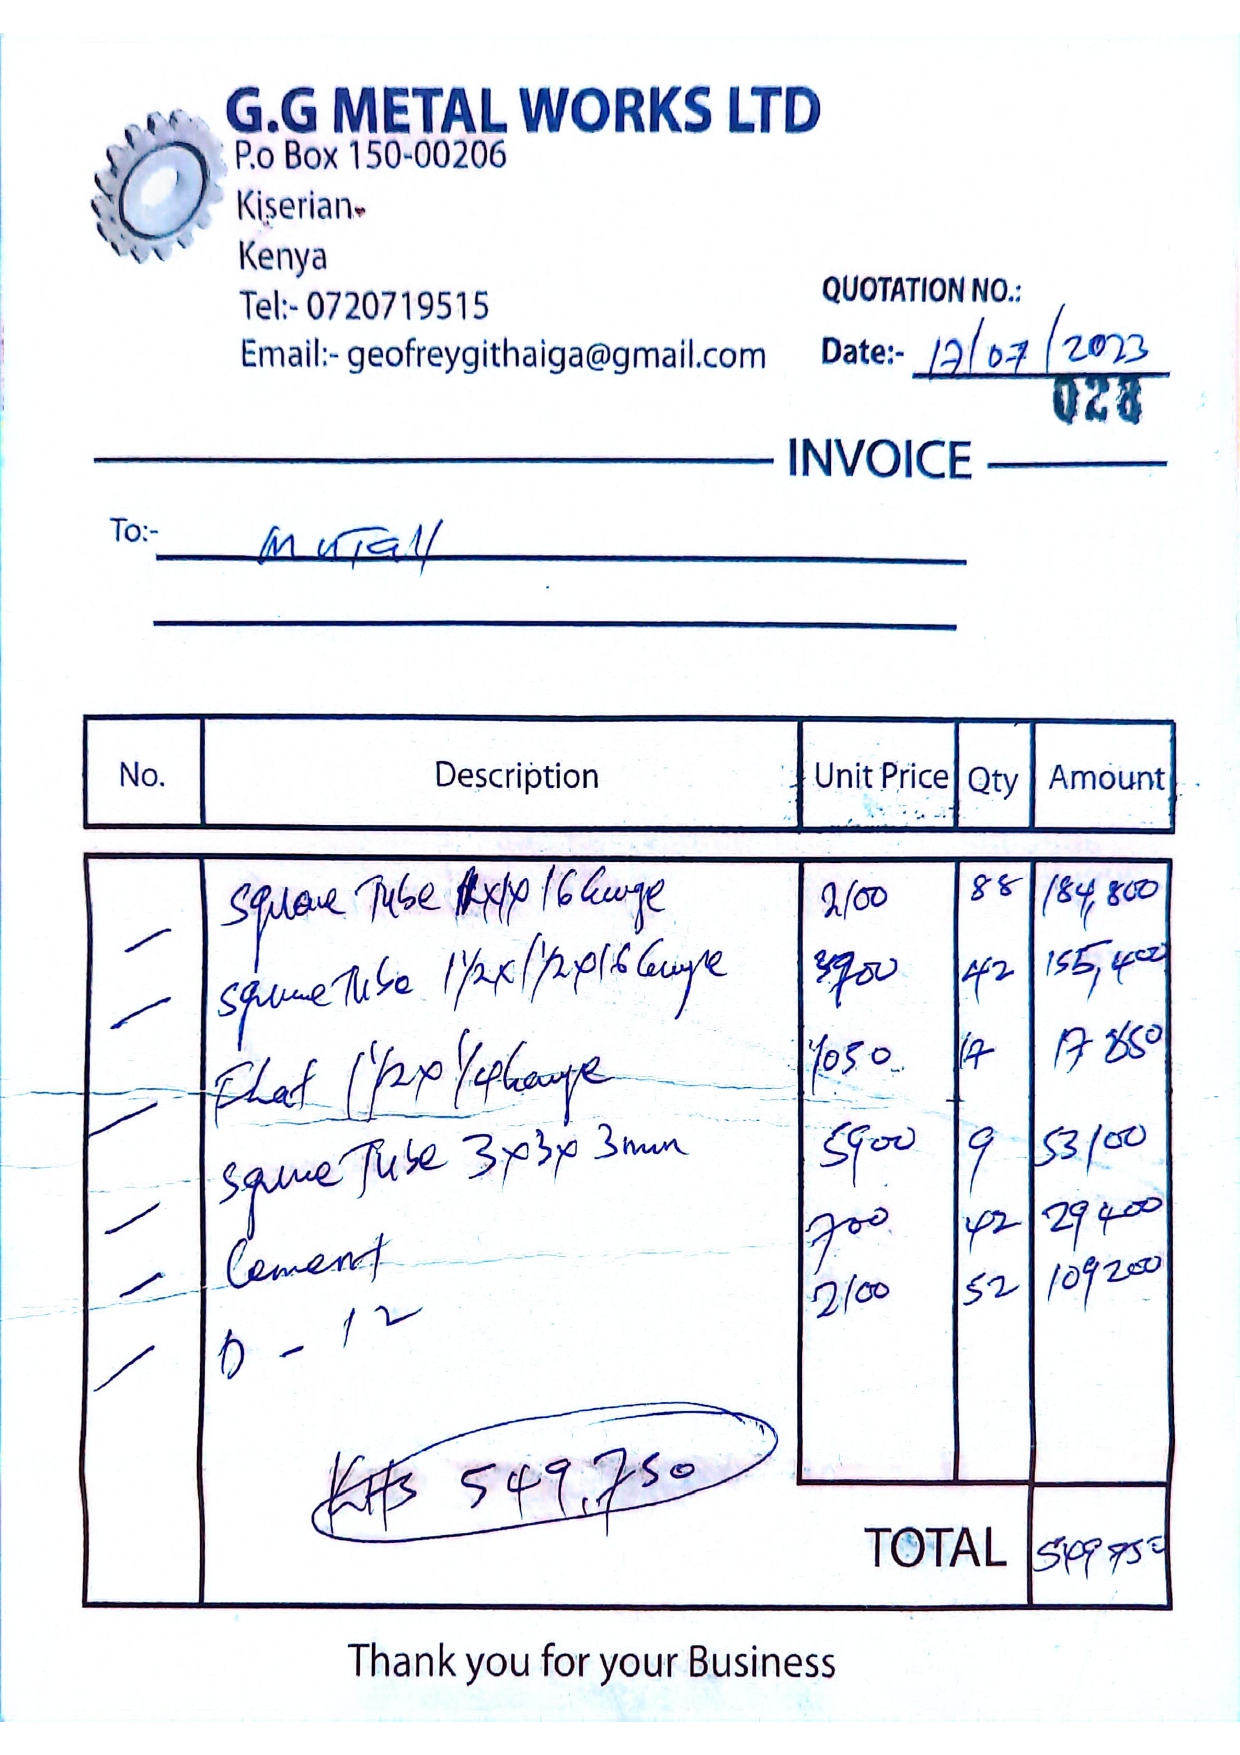 G.G METAL WORKS LTD
P.o Box 150-00206
Kiserian
Kenya
Tel:- 0720719515
Email:- geofreygithaiga@gmail.com
QUOTATION NO.:
Date:- 17/07/2023
028
INVOICE
To:-
No. Description Unit Price Qty Amount
Square Tube 16 Gauge 2100 88 184,800
Square Tube 1 1/2x1 1/2x16 Gauge 3700 42 155,400
Flat 1 1/2x 1/4 Gauge 1050 17 17 850
Square Tube 3x3x 3mm 5900 9 53100
Cement 700 42 29400
D - 12 2100 52 109200
KHS 549,750
TOTAL 549750
Thank you for your Business